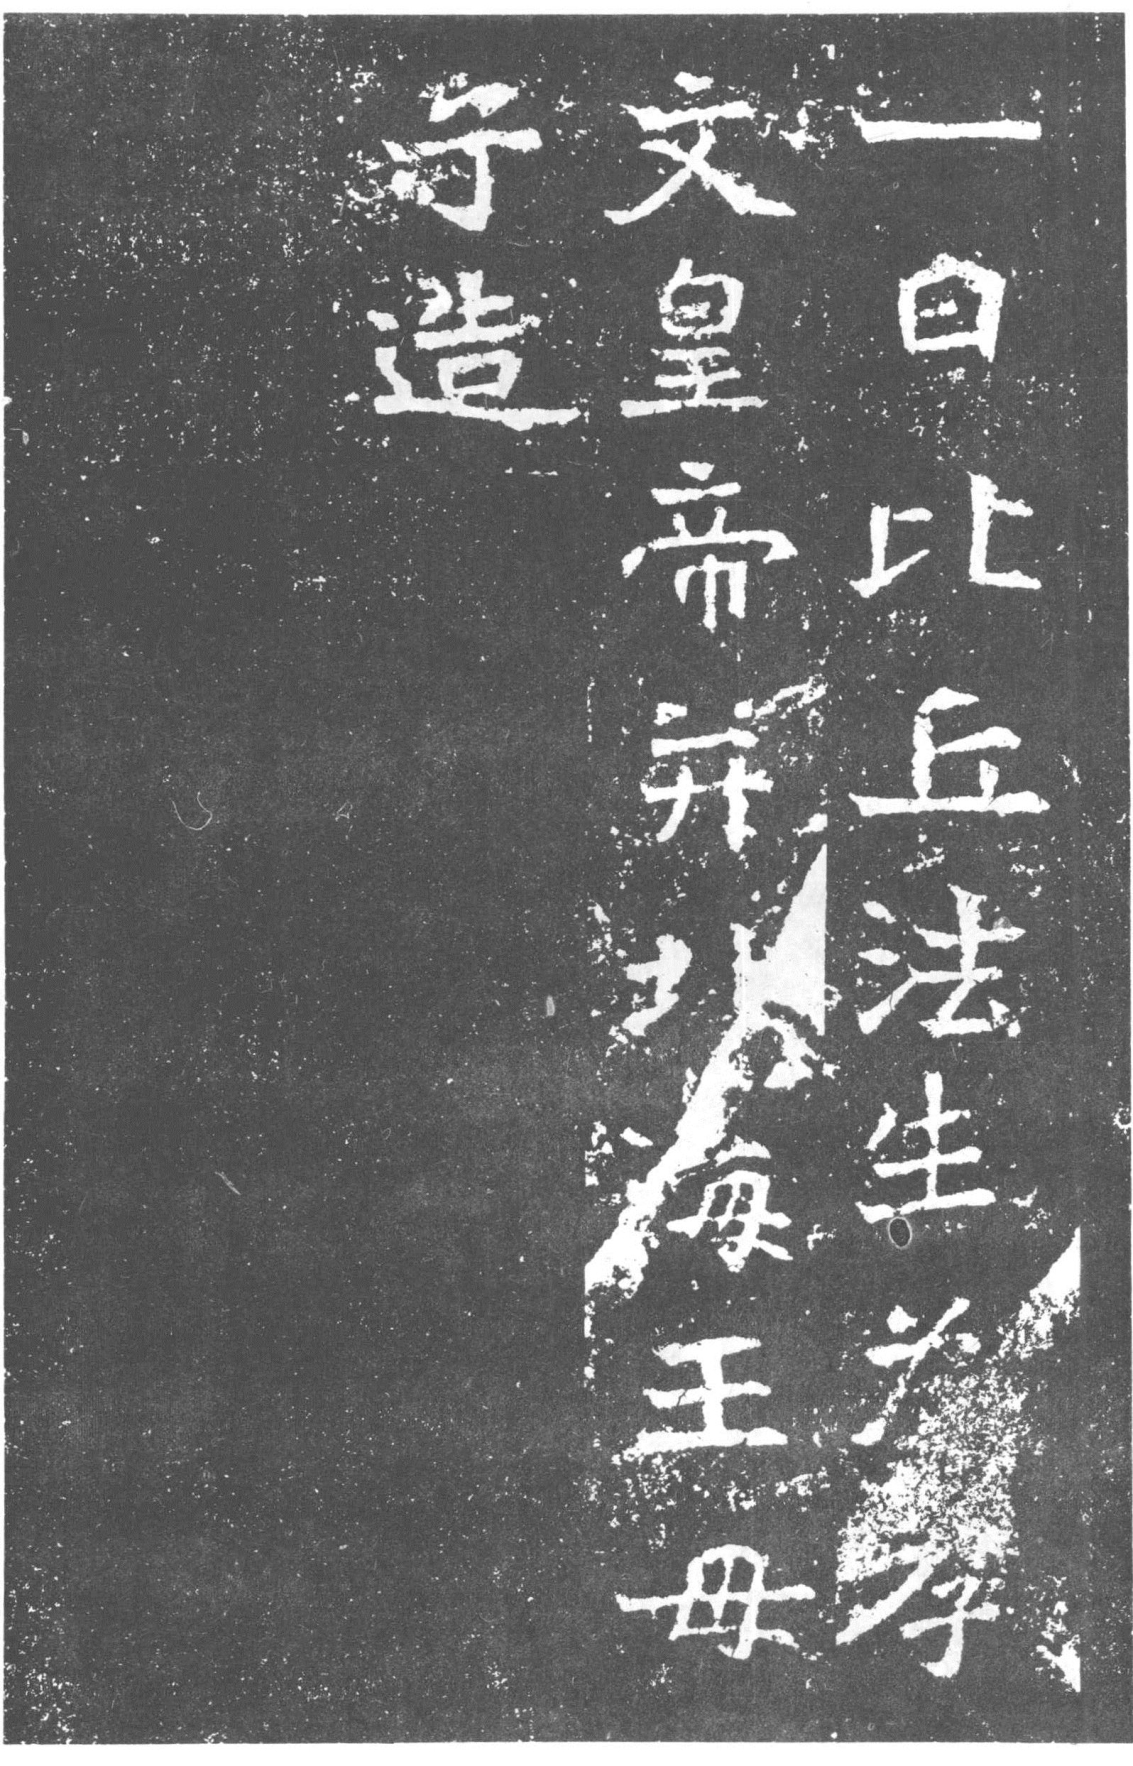 一日比丘法生為孝
文皇帝并北海王母
子造